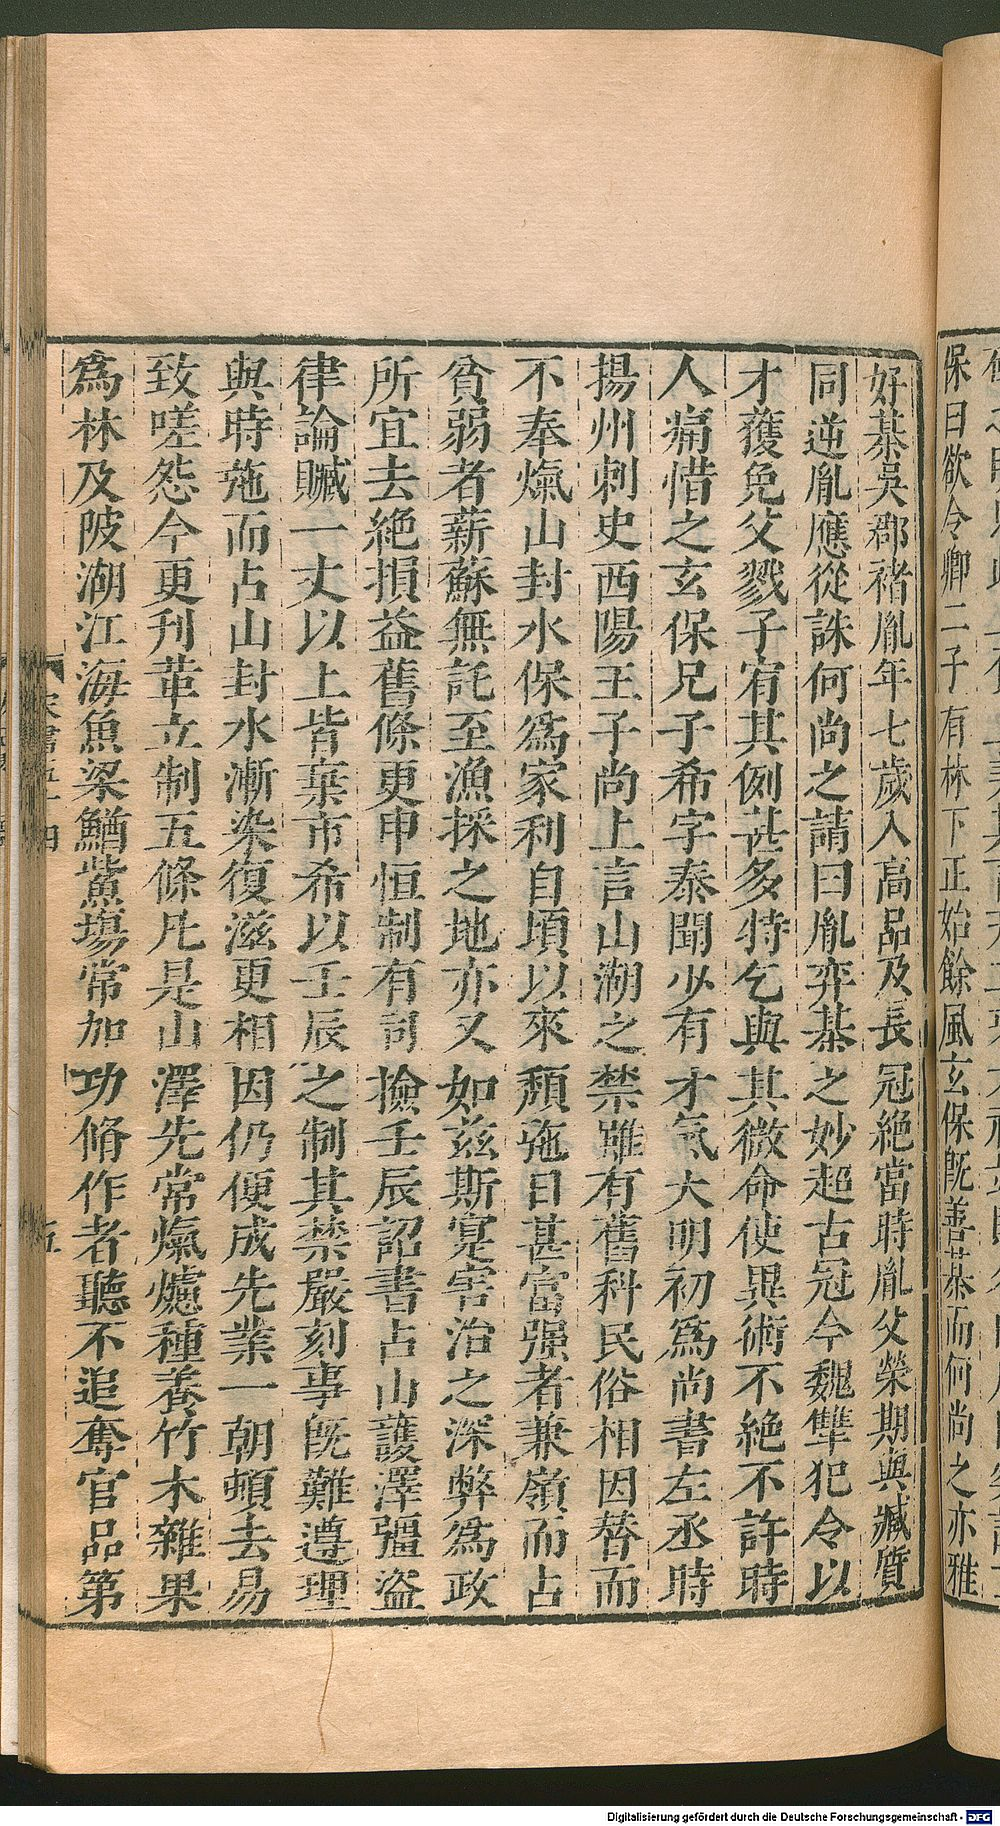 保曰欲令卿二子有林下正始餘風玄保既善棊而何尚之亦雅
好棊吳郡褚胤年七歲入高品及長冠絶當時胤父榮期與臧質
同逆胤應從誅何尚之請曰胤弈棊之妙超古冠今魏犨犯令以
才獲免父戮子宥其例甚多特乞與其微命使異術不絶不許時
人痛惜之玄保兄子希字泰聞少有才氣大明初爲尚書左丞時
揚州刺史西陽王子尚上言山湖之禁雖有舊科民俗相因替而
不奉爊山封水保爲家利自頃以來頹弛日甚富强者兼嶺而占
貧弱者薪蘇無託至漁採之地亦又如兹斯寔害治之深弊爲政
所宜去絶損益舊條更申恒制有司撿壬辰詔書占山護澤彊盜
律論贓一丈以上皆棄市希以壬辰之制其禁嚴刻事既難遵理
與時弛而占山封水漸染復滋更相因仍便成先業一朝頓去易
致嗟怨今更刋革立制五條凡是山澤先常爊爈種養竹木雜果
爲林及陂湖江海魚梁鰌鮆塲常加功脩作者聽不追奪官品第
五
Digitalisierung gefördert durch die Deutsche Forschungsgemeinschaft - DFG